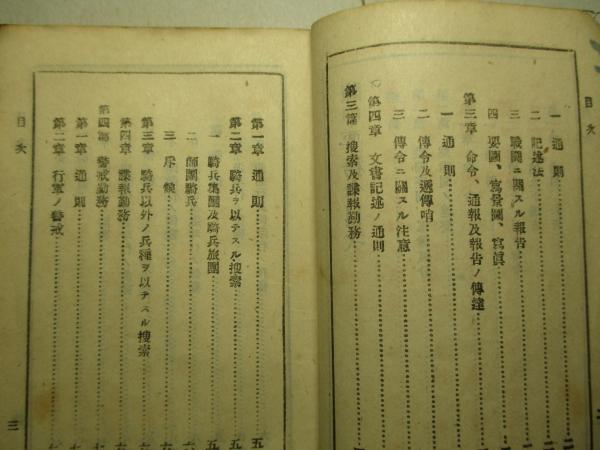 目次
一 通則
二 記述法
三 戰鬪ニ關スル報告
四 要圖、寫景圖、寫眞
第三章 命令、通報及報告ノ傳達
一 通則
二 傳令及遞傳哨
三 傳令ニ關スル注意
第四章 文書記述ノ通則
第三篇 搜索及諜報勤務
第一章 通則
第二章 騎兵ヲ以テスル搜索
一 騎兵集團及騎兵旅團
二 師團騎兵
三 斥候
第三章 騎兵以外ノ兵種ヲ以テスル搜索
第四章 諜報勤務
第四篇 警戒勤務
第一章 通則
第二章 行軍ノ警戒
目次
三